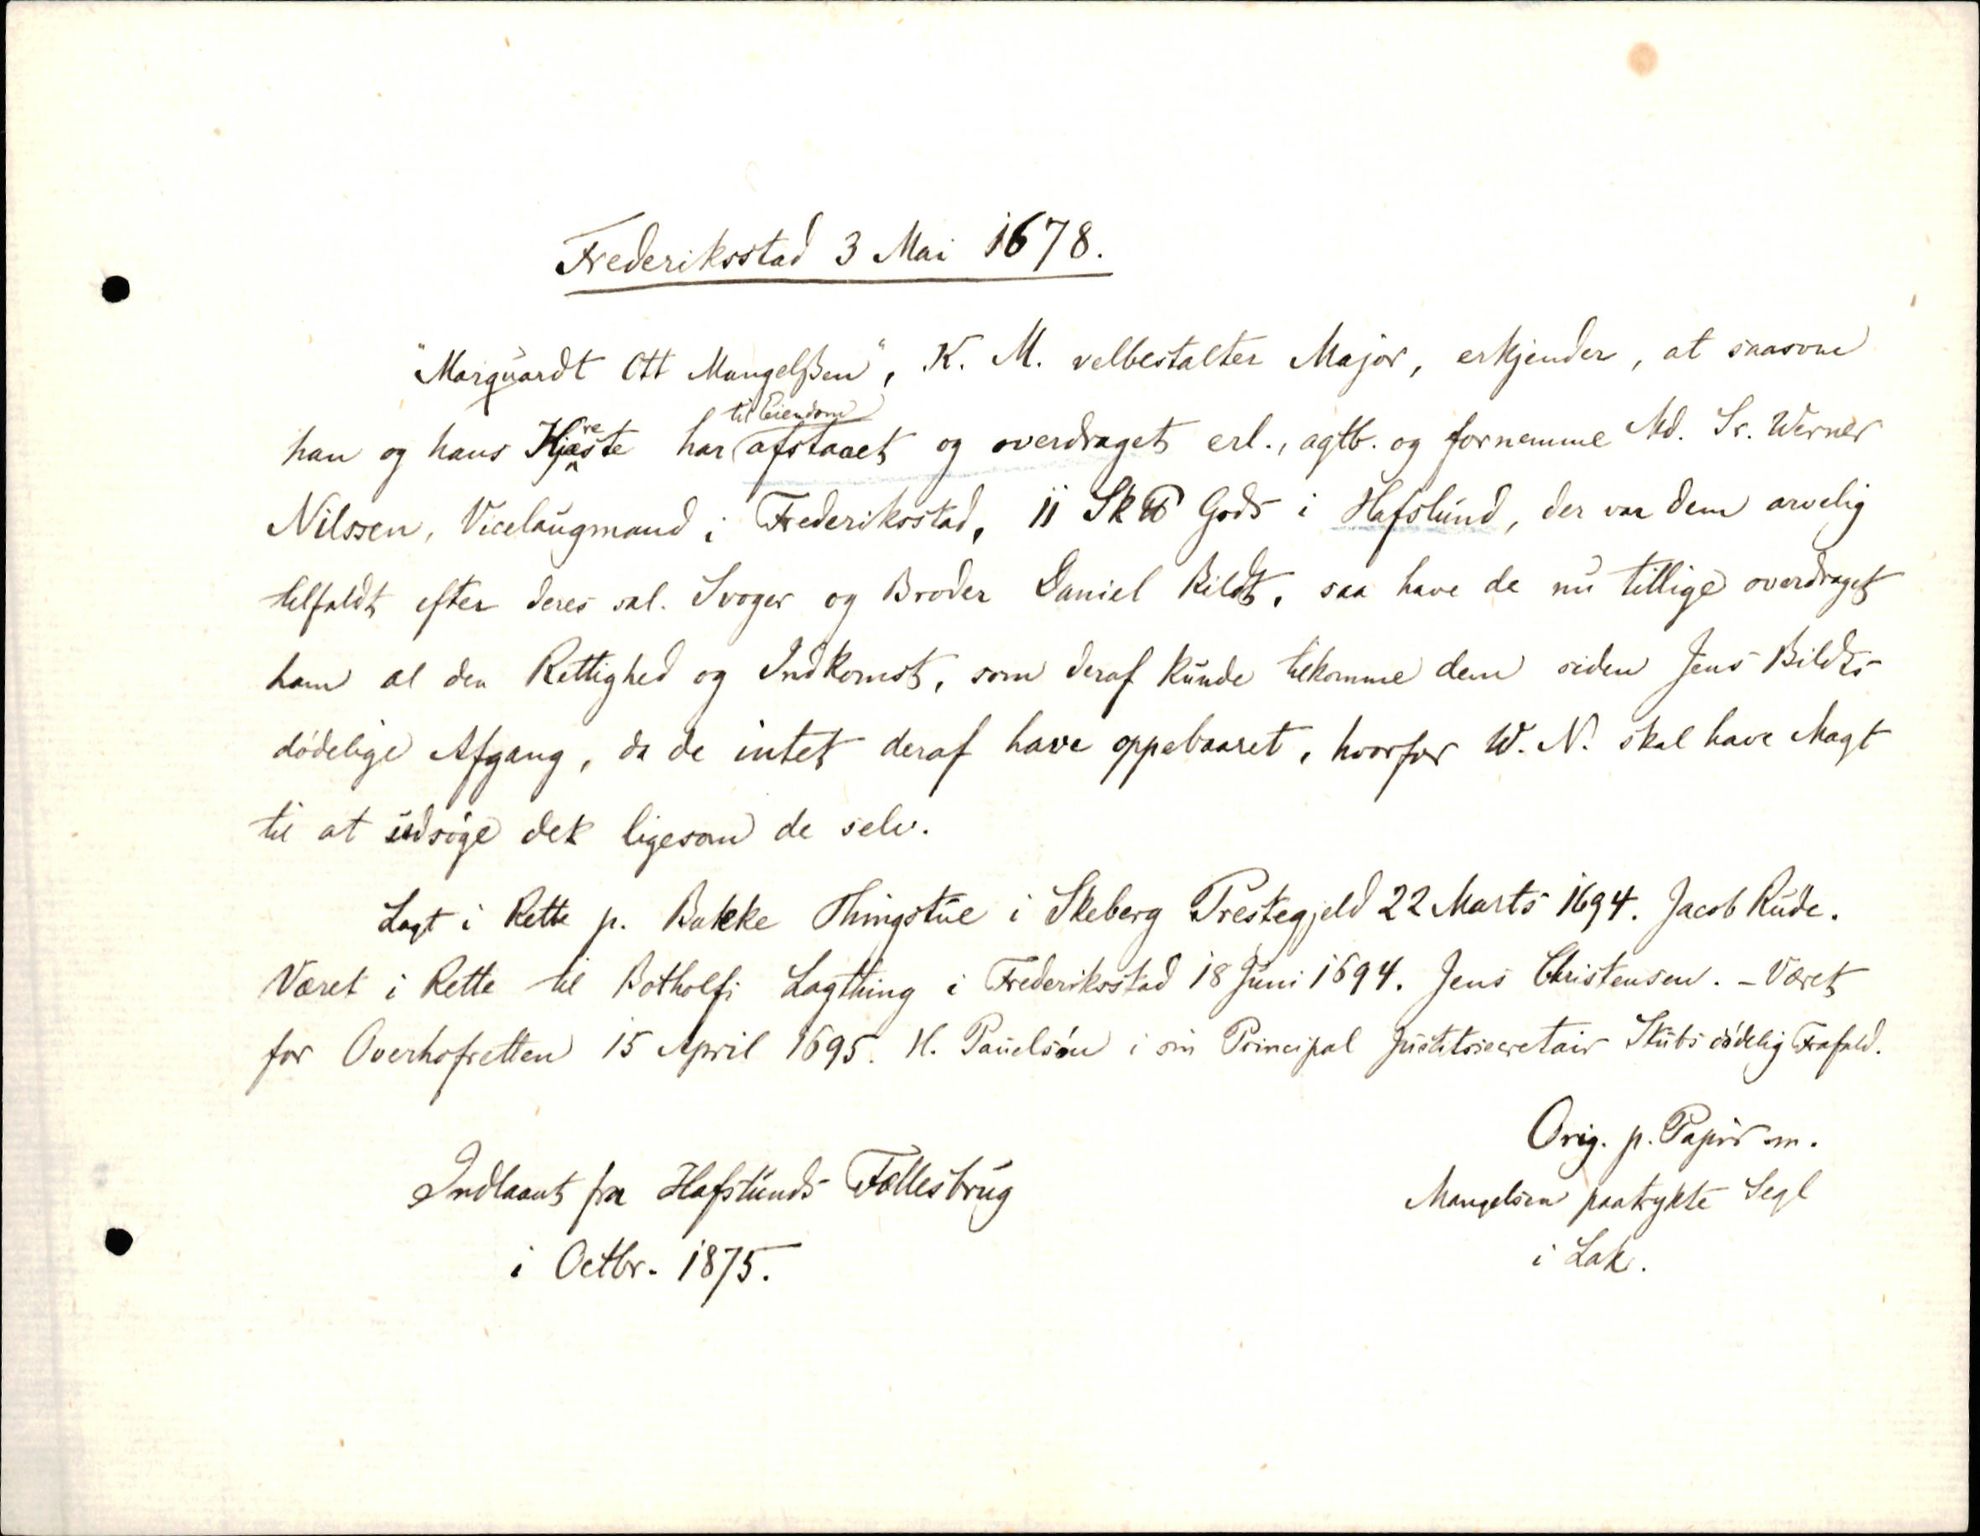 Frederiksstad 3 Mai 1678.
"Marquardt Ott Mangelßen", K. M. velbestalter Major, erkjender, at saasom
han og hans Kjæreste har til Eiendom afstaaet og overdraget erl., agtb. og fornemme Md. Sr. Werner
Nilssen, Vicelaugmand i Frederiksstad, 11 Sk ℔ Gods i Hafslund, der var dem arvelig
tilfaldt efter deres sal. Svoger og Broder Daniel Bildt, saa have de nu tillige overdraget
ham al den Rettighed og Indkomst, som deraf kunde tilkomme dem siden Jens Bildts
dødelige Afgang, da de intet deraf have oppebaaret, hvorfor W. N. skal have Magt
til at udsøge det ligesom de selv.
Lagt i Rette p. Bakke Thingstue i Skeberg Prestegjeld 22 Marts 1694. Jacob Rude.
Været i Rette til Botholfi Lagthing i Frederiksstad 18 Juni 1694. Jens Christensen. - Været
for Overhofretten 15 April 1695. H. Pauelsøn i sin Principal Justitssecretair Stubs dødelig Frafald.
Orig. p. Papir m.
Mangelsen paatrykte Segl
i Lak.
Indlaant fra Hafslunds Fællesbrug
i Octbr. 1875.